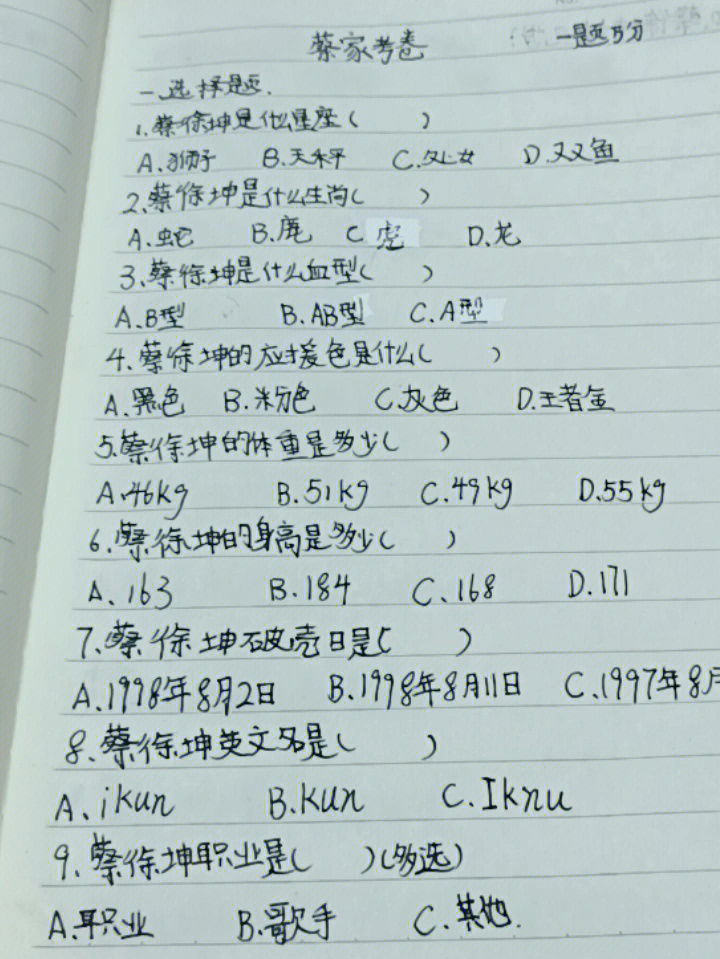 蔡家考卷 一题5分
一.选择题.
1.蔡徐坤是什么星座( )
A.狮子 B.天秤 C.处女 D.双鱼
2.蔡徐坤是什么生肖( )
A.蛇 B.鹿 C.虎 D.龙
3.蔡徐坤是什么血型( )
A.B型 B.AB型 C.A型
4.蔡徐坤的应援色是什么( )
A.黑色 B.粉色 C.灰色 D.王者金
5.蔡徐坤的体重是多少( )
A.46kg B.51kg C.49kg D.55kg
6.蔡徐坤的身高是多少( )
A.163 B.184 C.168 D.171
7.蔡徐坤破壳日是( )
A.1998年8月2日 B.1998年8月11日 C.1997年8月
8.蔡徐坤英文名是( )
A.ikun B.Kun C.Iknu
9.蔡徐坤职业是( )(多选)
A.职业 B.歌手 C.其他.